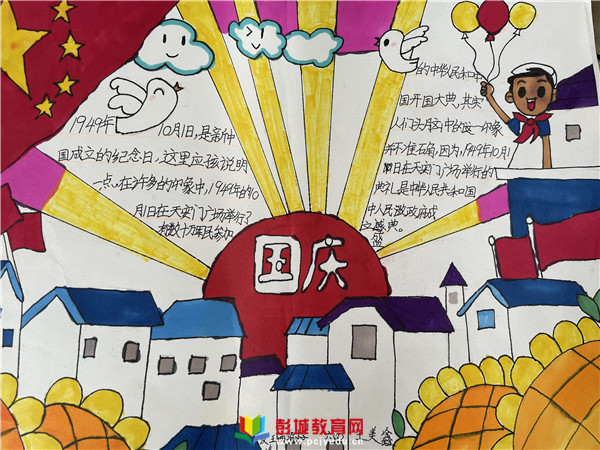 1949年 10月1日,是新中
国成立的纪念日,这里应该说明
一点,在许多的印象中,1949年的10
月1日在天安门广场举行了
有数十万军民参加
的中华人民和中
国开国大典,其实
人们头脑中的这一印象
并不准确,因为,1949年10月1
日在天安门广场举行的
典礼是中华人民共和国
中人民政府成
立盛典。
盛
国庆
彭城教育网
www.pcjyedu.com
美鑫